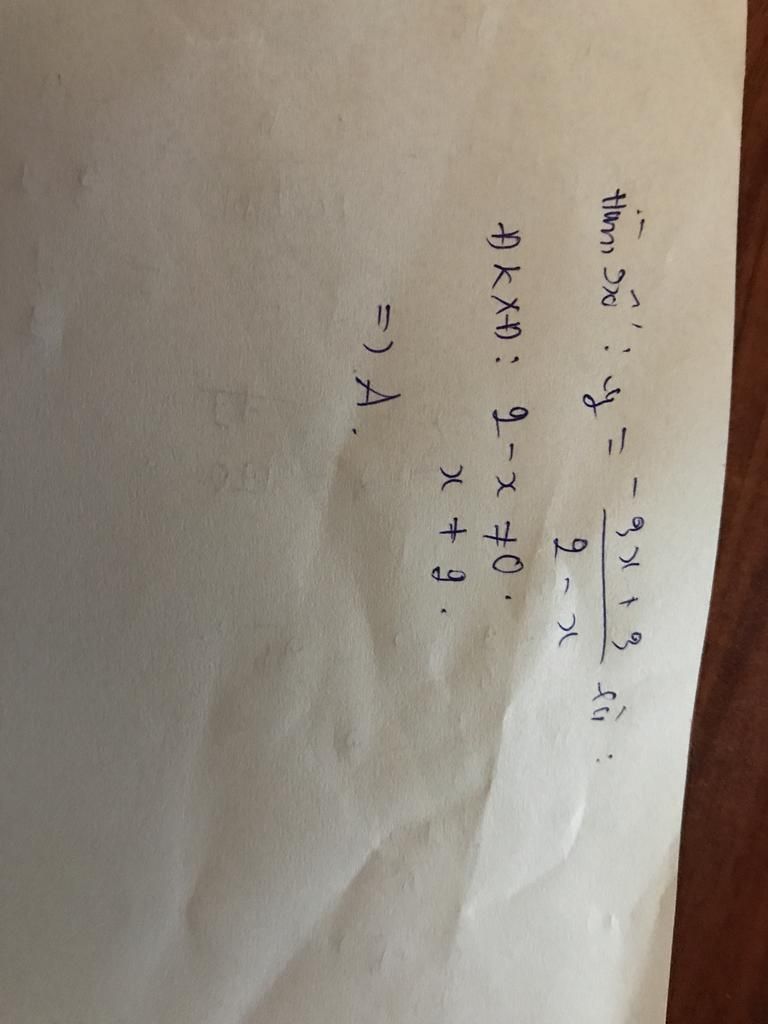 Hàm số: y = -3x + 3 là:
2 - x
ĐKXĐ: 2 - x ≠ 0.
x ≠ 2.
=) A.